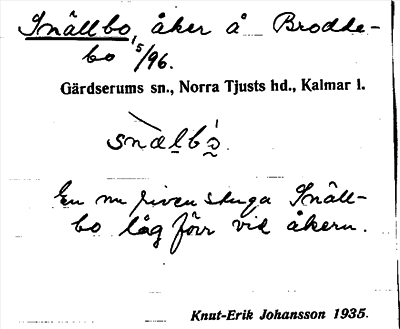 Snällbo, åker å Brodde-
bo 1/5/96.
Gärdserums sn., Norra Tjusts hd., Kalmar l.
snælbɷ̀.
En nu riven stuga Snäll-
bo låg förr vid åkern.
Knut-Erik Johansson 1935.